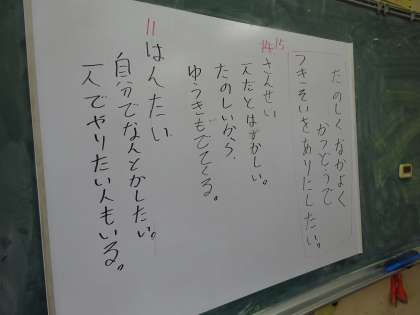 たのしくなかよく
かつどうで
つきそいをありにしたい。
14 15
さんせい
一人だとはずかしい。
たのしいから、
ゆうきもでてくる。
11
はんたい
自分でなんとかしたい。
一人でやりたい人もいる。